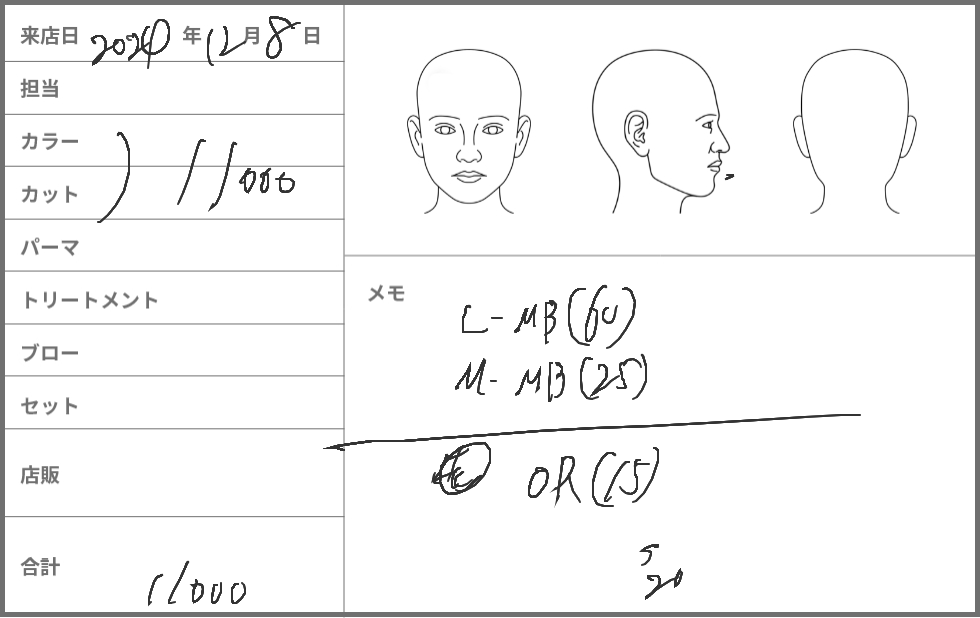 来店日 2024年12月8日
担当
カラー
カット ) 11000
パーマ
トリートメント
ブロー
セット
店販
合計 11000
メモ
L-MB(60)
M-MB(25)
OR(15)
5
20